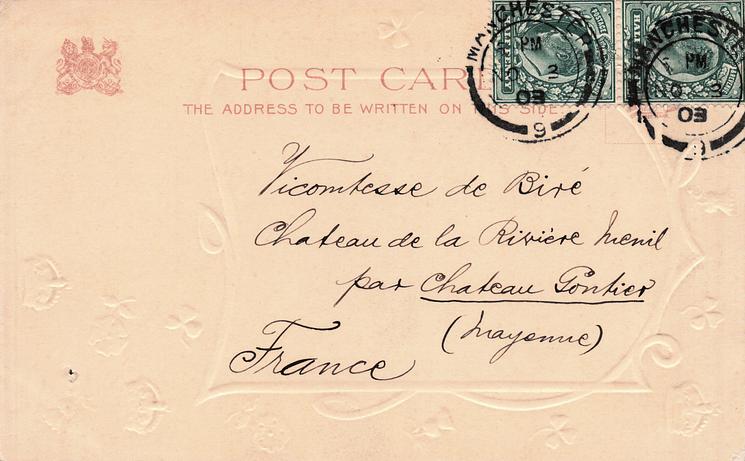 POST CARD
THE ADDRESS TO BE WRITTEN ON THIS SIDE.
MANCHESTER
PM
NO 2
03
9
MANCHESTER
PM
NO 2
03
9
HALF
Vicomtesse de Biré
Chateau de la Rivière Menil
par Chateau Gontier
(Mayenne)
France